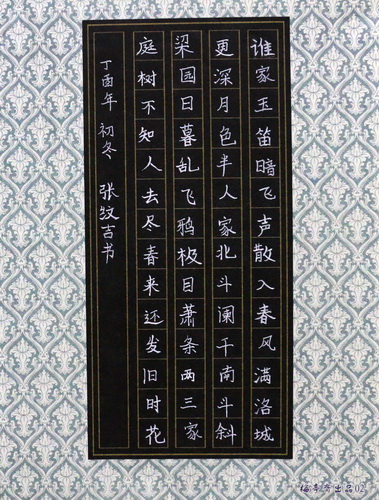 谁家玉笛暗飞声散入春风满洛城
更深月色半人家北斗阑干南斗斜
梁园日暮乱飞鸦极目萧条两三家
庭树不知人去尽春来还发旧时花
丁酉年 初冬 张纹吉书
出品02